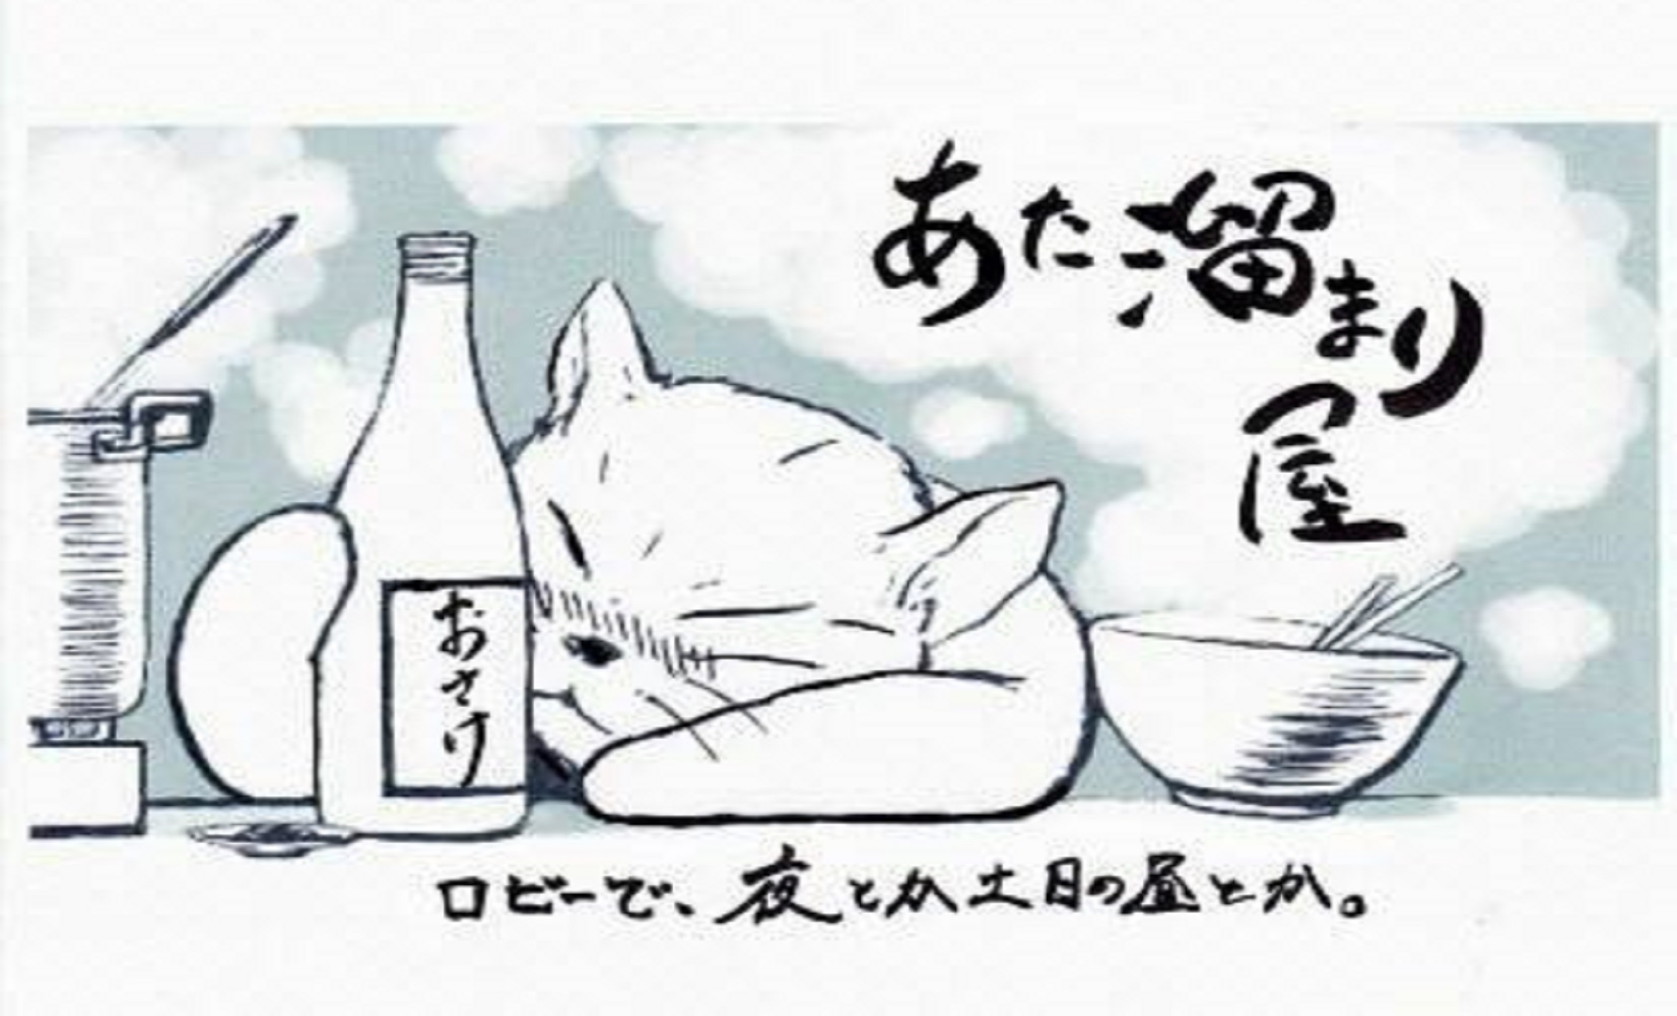 あた溜まり
屋
おさけ
ロビーで、夜とか土日の昼とか。